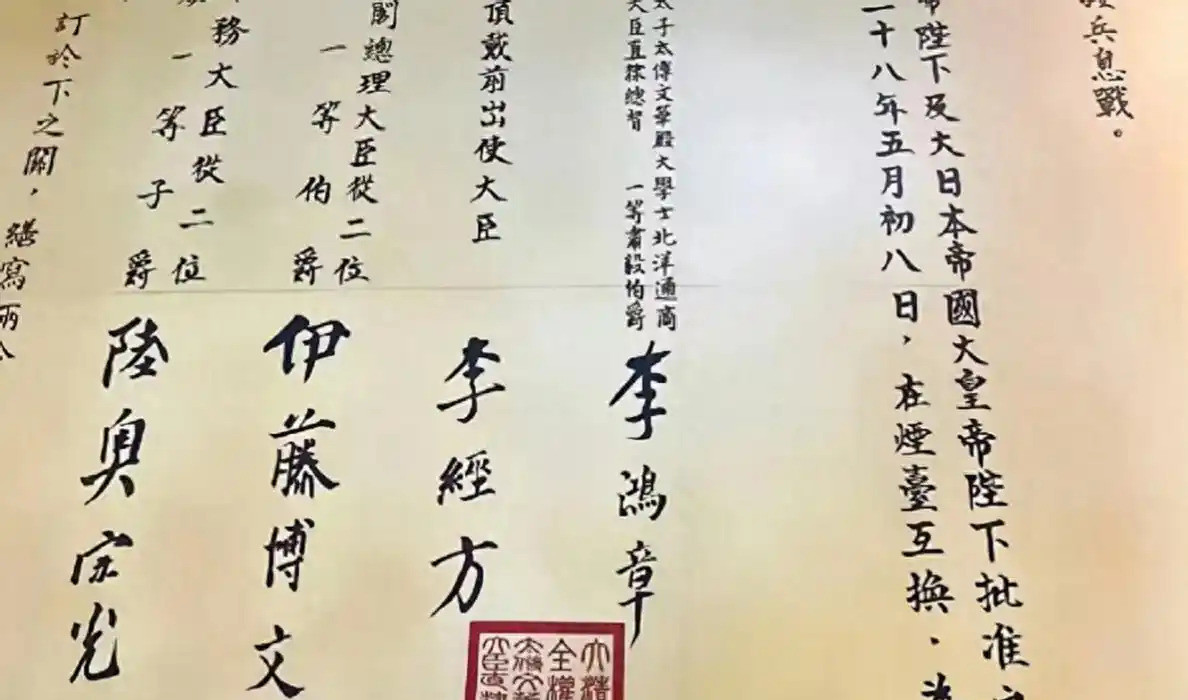 兵息戰。
陛下及大日本帝國大皇帝陛下批准
二十八年五月初八日,在煙臺互換.
太子太傅文華殿大學士北洋通商
大臣直隸總督 一等肅毅伯爵
李鴻章
頂戴前出使大臣
李經方
閣總理大臣從二位
一等伯爵
伊藤博文
務大臣從二位
一等子爵
陸奥宗光
訂於下之關,繕寫兩
大清
全權